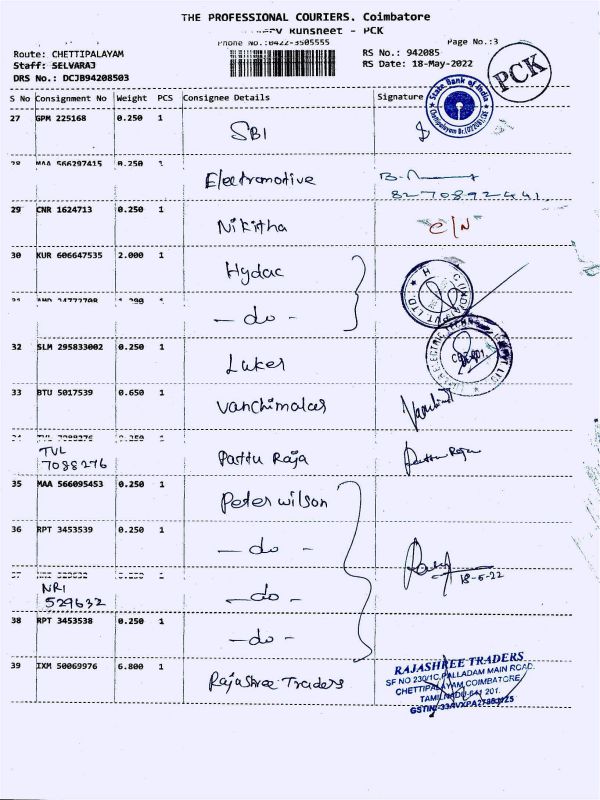 THE PROFESSIONAL COURIERS. Coimbatore
Runsheet - PCK
Phone No.:0422-3505555
Page No.:3
Route: CHETTIPALAYAM
RS No.: 942085
Staff: SELVARAJ
RS Date: 18-May-2022
DRS No.: DCJB94208503
PCK
S No Consignment No Weight PCS Consignee Details Signature
State Bank of India
27 GPM 225168 0.250 1 SBI
28 MAA 566297415 0.250 1 Electromotive
8270892441
29 CNR 1624713 0.250 1 Nikitha C/N
30 KUR 606647535 2.000 1 Hydac
31 AMD 24772708 1.200 1 - do -
32 SLM 295833002 0.250 1 Luker
33 BTU 5017539 0.650 1 Vanchimalar
34 TVL 7088276 0.250 1 Pattu Raja
TVL
7088276
35 MAA 566095453 0.250 1 Peter Wilson
36 RPT 3453539 0.250 1 - do -
18-5-22
37 - do -
NRI
529632
38 RPT 3453538 0.250 1 - do -
39 IXM 50069976 6.800 1 Rajashree Traders
RAJASHREE TRADERS
SF NO 230/1C, PALLADAM MAIN ROAD.
CHETTIPALAYAM, COIMBATORE
TAMILNADU-641 201.